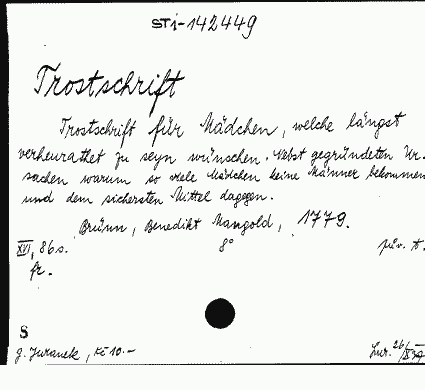 STi-142449
Trostschrift
Trostschrift für Mädchen, welche längst
verheurathet zu seyn wünschen. Nebst gegründeten Ur-
sachen warum so viele Mädchen keine Männer bekommen
und dem sichersten Mittel dagegen.
Brünn, Benedikt Mangold, 1779.
XVI, 86 s. 8° pův. t.
fr.
S
g. Juranek, Kč 10.-